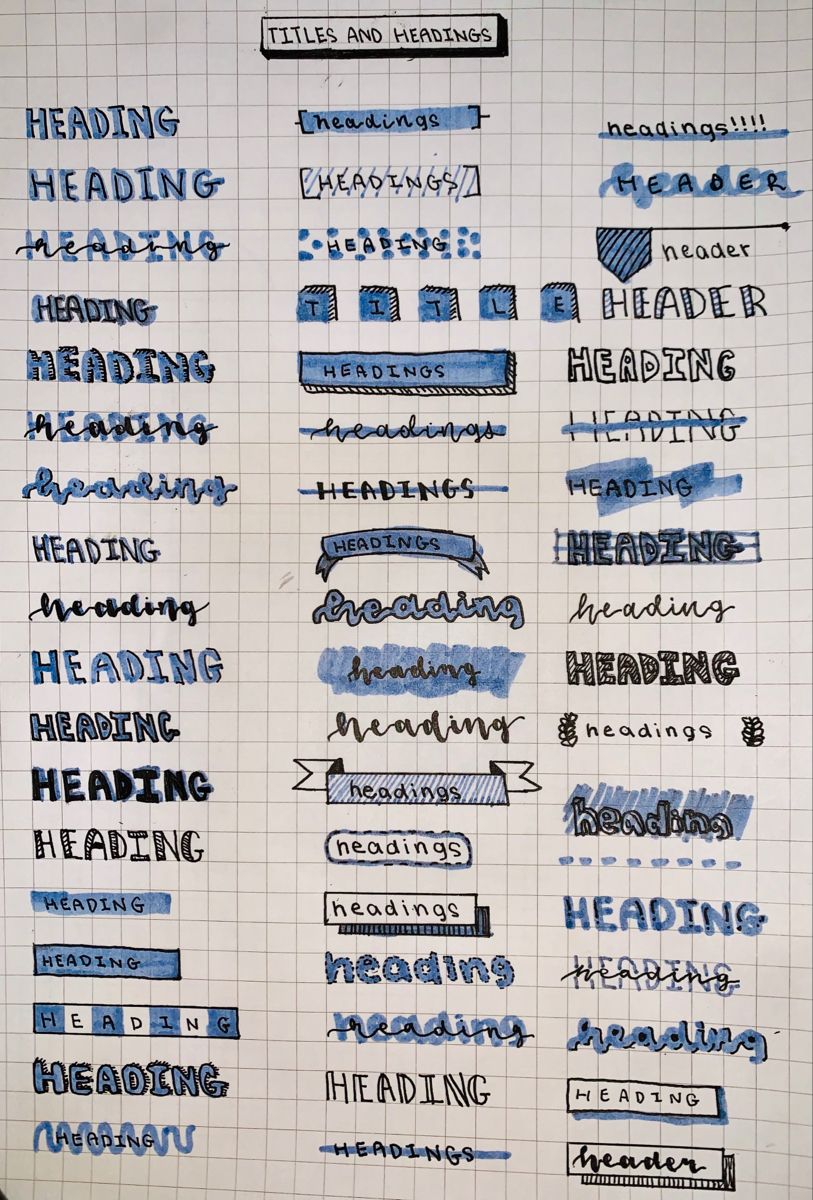 TITLES AND HEADINGS
HEADING
HEADING
heading
HEADING
HEADING
heading
heading
HEADING
heading
HEADING
HEADING
HEADING
HEADING
HEADING
HEADING
HEADING
HEADING
HEADING
headings
HEADINGS
HEADING
TITLE
HEADINGS
headings
HEADINGS
HEADINGS
heading
heading
heading
headings
headings
headings
heading
heading
HEADING
HEADINGS
headings!!!!
HEADER
header
HEADER
HEADING
HEADING
HEADING
HEADING
heading
HEADING
headings
heading
HEADING
heading
heading
HEADING
header